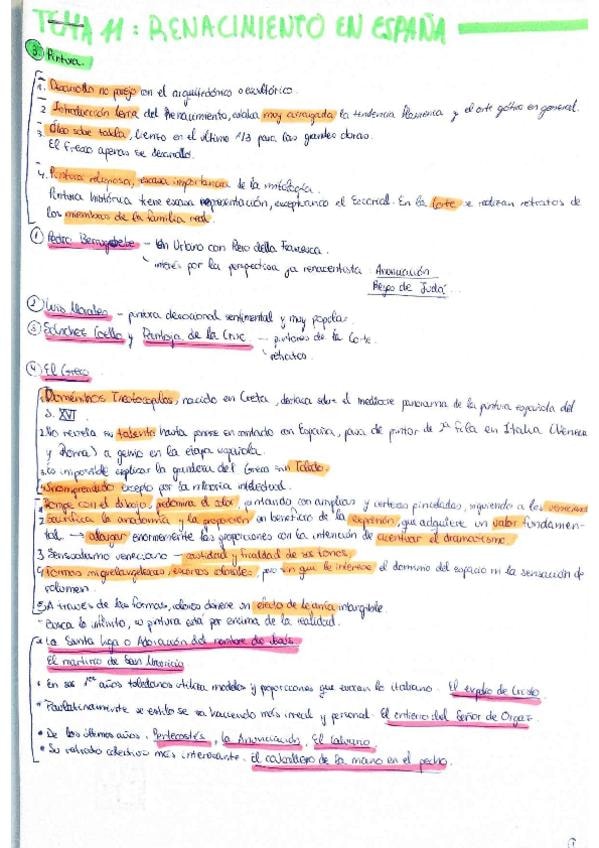 TEMA 11: RENACIMIENTO EN ESPAÑA
3. Pintura.
1. Desarrollo no parejo con el arquitectónico o escultórico.
2. Introducción lenta del Renacimiento, estaba muy arraigada la tendencia flamenca y el arte gótico en general.
3. Óleo sobre tabla, lienzo en el último 1/3 para las grandes obras.
El fresco apenas se desarrolló.
4. Pintura religiosa, escasa importancia de la mitología.
Pintura histórica tiene escasa representación, exceptuando el Escorial. En la Corte se realizan retratos de
los miembros de la familia real.
① Pedro Berruguete - En Urbino con Piero della Francesca.
interés por la perspectiva ya renacentista. Anunciación
Reyes de Judá...
② Luis Morales - pintura devocional sentimental y muy popular.
③ Sánchez Coello y Pantoja de la Cruz - pintores de la Corte.
retratos.
④ El Greco
1. Doménikos Theotocopulos, nacido en Creta, destaca sobre el mediocre panorama de la pintura española del
S. XVI
2. No revela su talento hasta ponerse en contacto con España, pasa de pintor de 2ª fila en Italia (Venecia
y Roma) a genio en la etapa española.
3. Es imposible explicar la grandeza del Greco sin Toledo.
4. Incomprendido excepto por la minoría intelectual.
1. Rompe con el dibujo, predomina el color, pintando con amplias y certeras pinceladas, siguiendo a los venecianos
2. Sacrifica la anatomía y la proporción en beneficio de la expresión, que adquiere un valor fundamen-
tal → alargar enormemente las proporciones con la intención de acentuar el dramatismo.
3. Sensualismo veneciano - calidad y frialdad de sus tonos.
4. Formas miguelangelescas, escorzos difíciles, pero sin que le interese el dominio del espacio ni la sensación de
volumen.
5. A través de las formas, colores obtiene un efecto de lejanía intangible.
- Busca lo infinito, su pintura está por encima de la realidad.
La Santa Liga o Adoración del nombre de Jesús.
El martirio de San Mauricio
• En sus 1ros años toledanos utiliza modelos y proporciones que evocan lo italiano. El expolio de Cristo.
• Paulatinamente su estilo se va haciendo más irreal y personal. El entierro del Señor de Orgaz.
• De los últimos años. Pentecostés, La Anunciación, El Calvario.
• Su retrato más interesante. El caballero de la mano en el pecho.